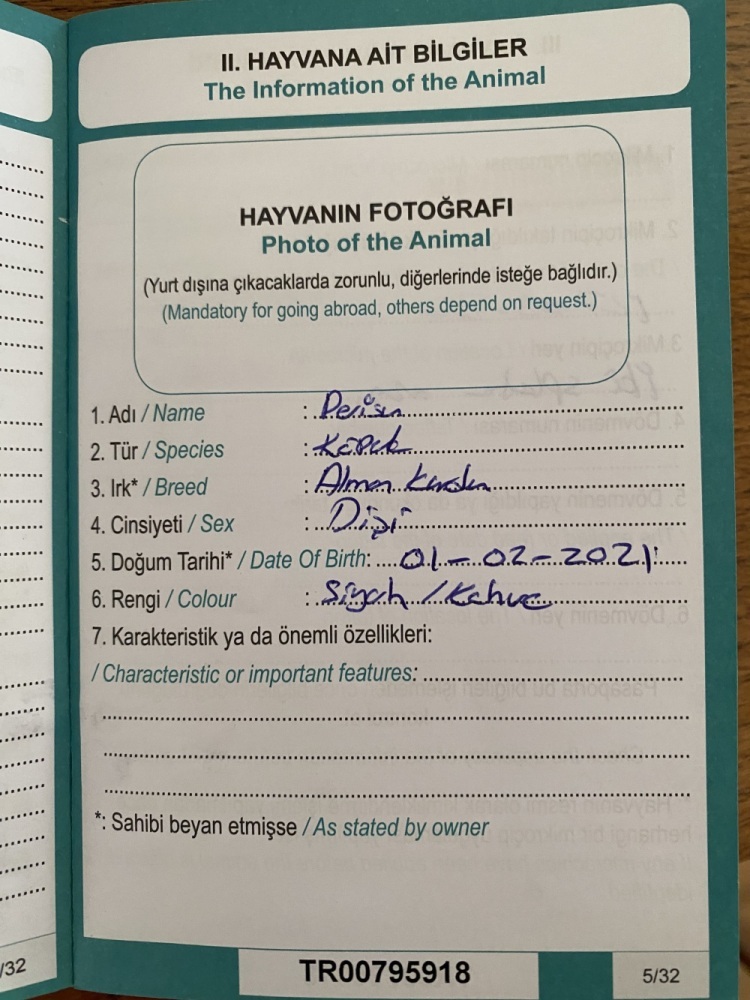 II. HAYVANA AİT BİLGİLER
The Information of the Animal
HAYVANIN FOTOĞRAFI
Photo of the Animal
(Yurt dışına çıkacaklarda zorunlu, diğerlerinde isteğe bağlıdır.)
(Mandatory for going abroad, others depend on request.)
1. Adı / Name :
2. Tür / Species : Köpek
3. Irk* / Breed : Alman Kurdu
4. Cinsiyeti / Sex : Dişi
5. Doğum Tarihi* / Date Of Birth: 01-02-2021
6. Rengi / Colour : Siyah / Kahve
7. Karakteristik ya da önemli özellikleri:
/ Characteristic or important features:
*: Sahibi beyan etmişse / As stated by owner
/32
TR00795918
5/32